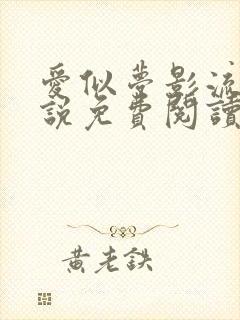 愛似夢影流
說免費閱讀
黃老鉄